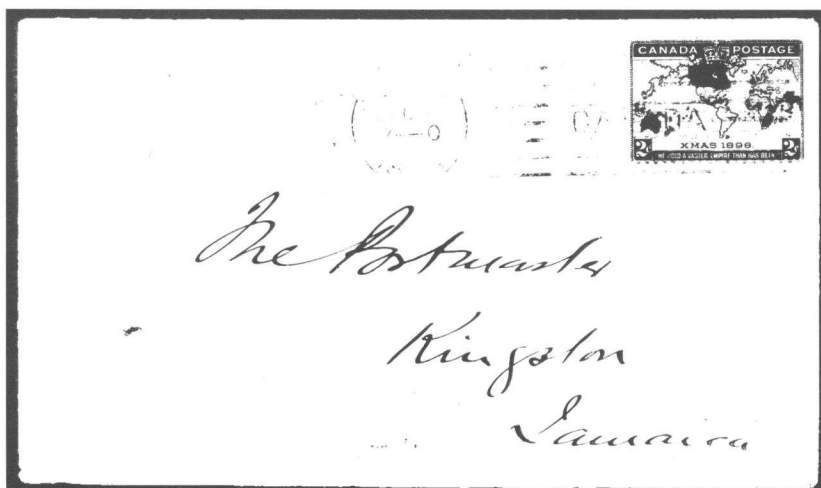 CANADA POSTAGE
XMAS 1898
2c 2c
WE HOLD A VASTER EMPIRE THAN HAS BEEN
The Postmaster
Kingston
Jamaica